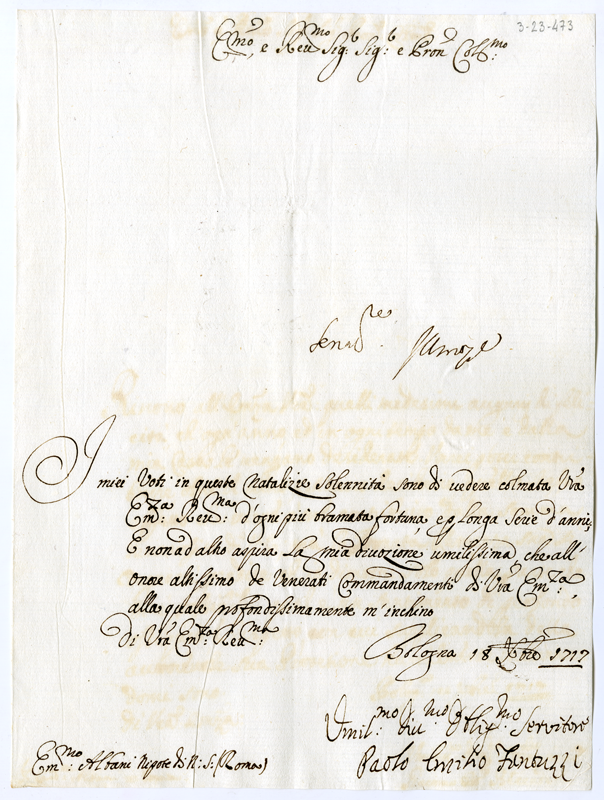 3-23-473
Emo, e Reumo Sig: Sig: e Pron Collmo:
Senadre.
I miei Voti in queste Natalizie Solennità sono di vedere colmata Vra
Emza: Reuma: d'ogni più bramata fortuna, e p longa Serie d'anni;
E non ad altro aspira La mia divozione umilissima, che all'
onore altissimo de Venerati Commandamenti di Vra Emza:,
alla quale profondissimamente m'inchino
Di Vra Emza: Reuma:
Bologna 18 Xbre 1717
Vmilmo Diumo Obligmo Servitore
Paolo Emilio Fantuzzi
Emmo: Albani Nipote di N: S: (Roma)